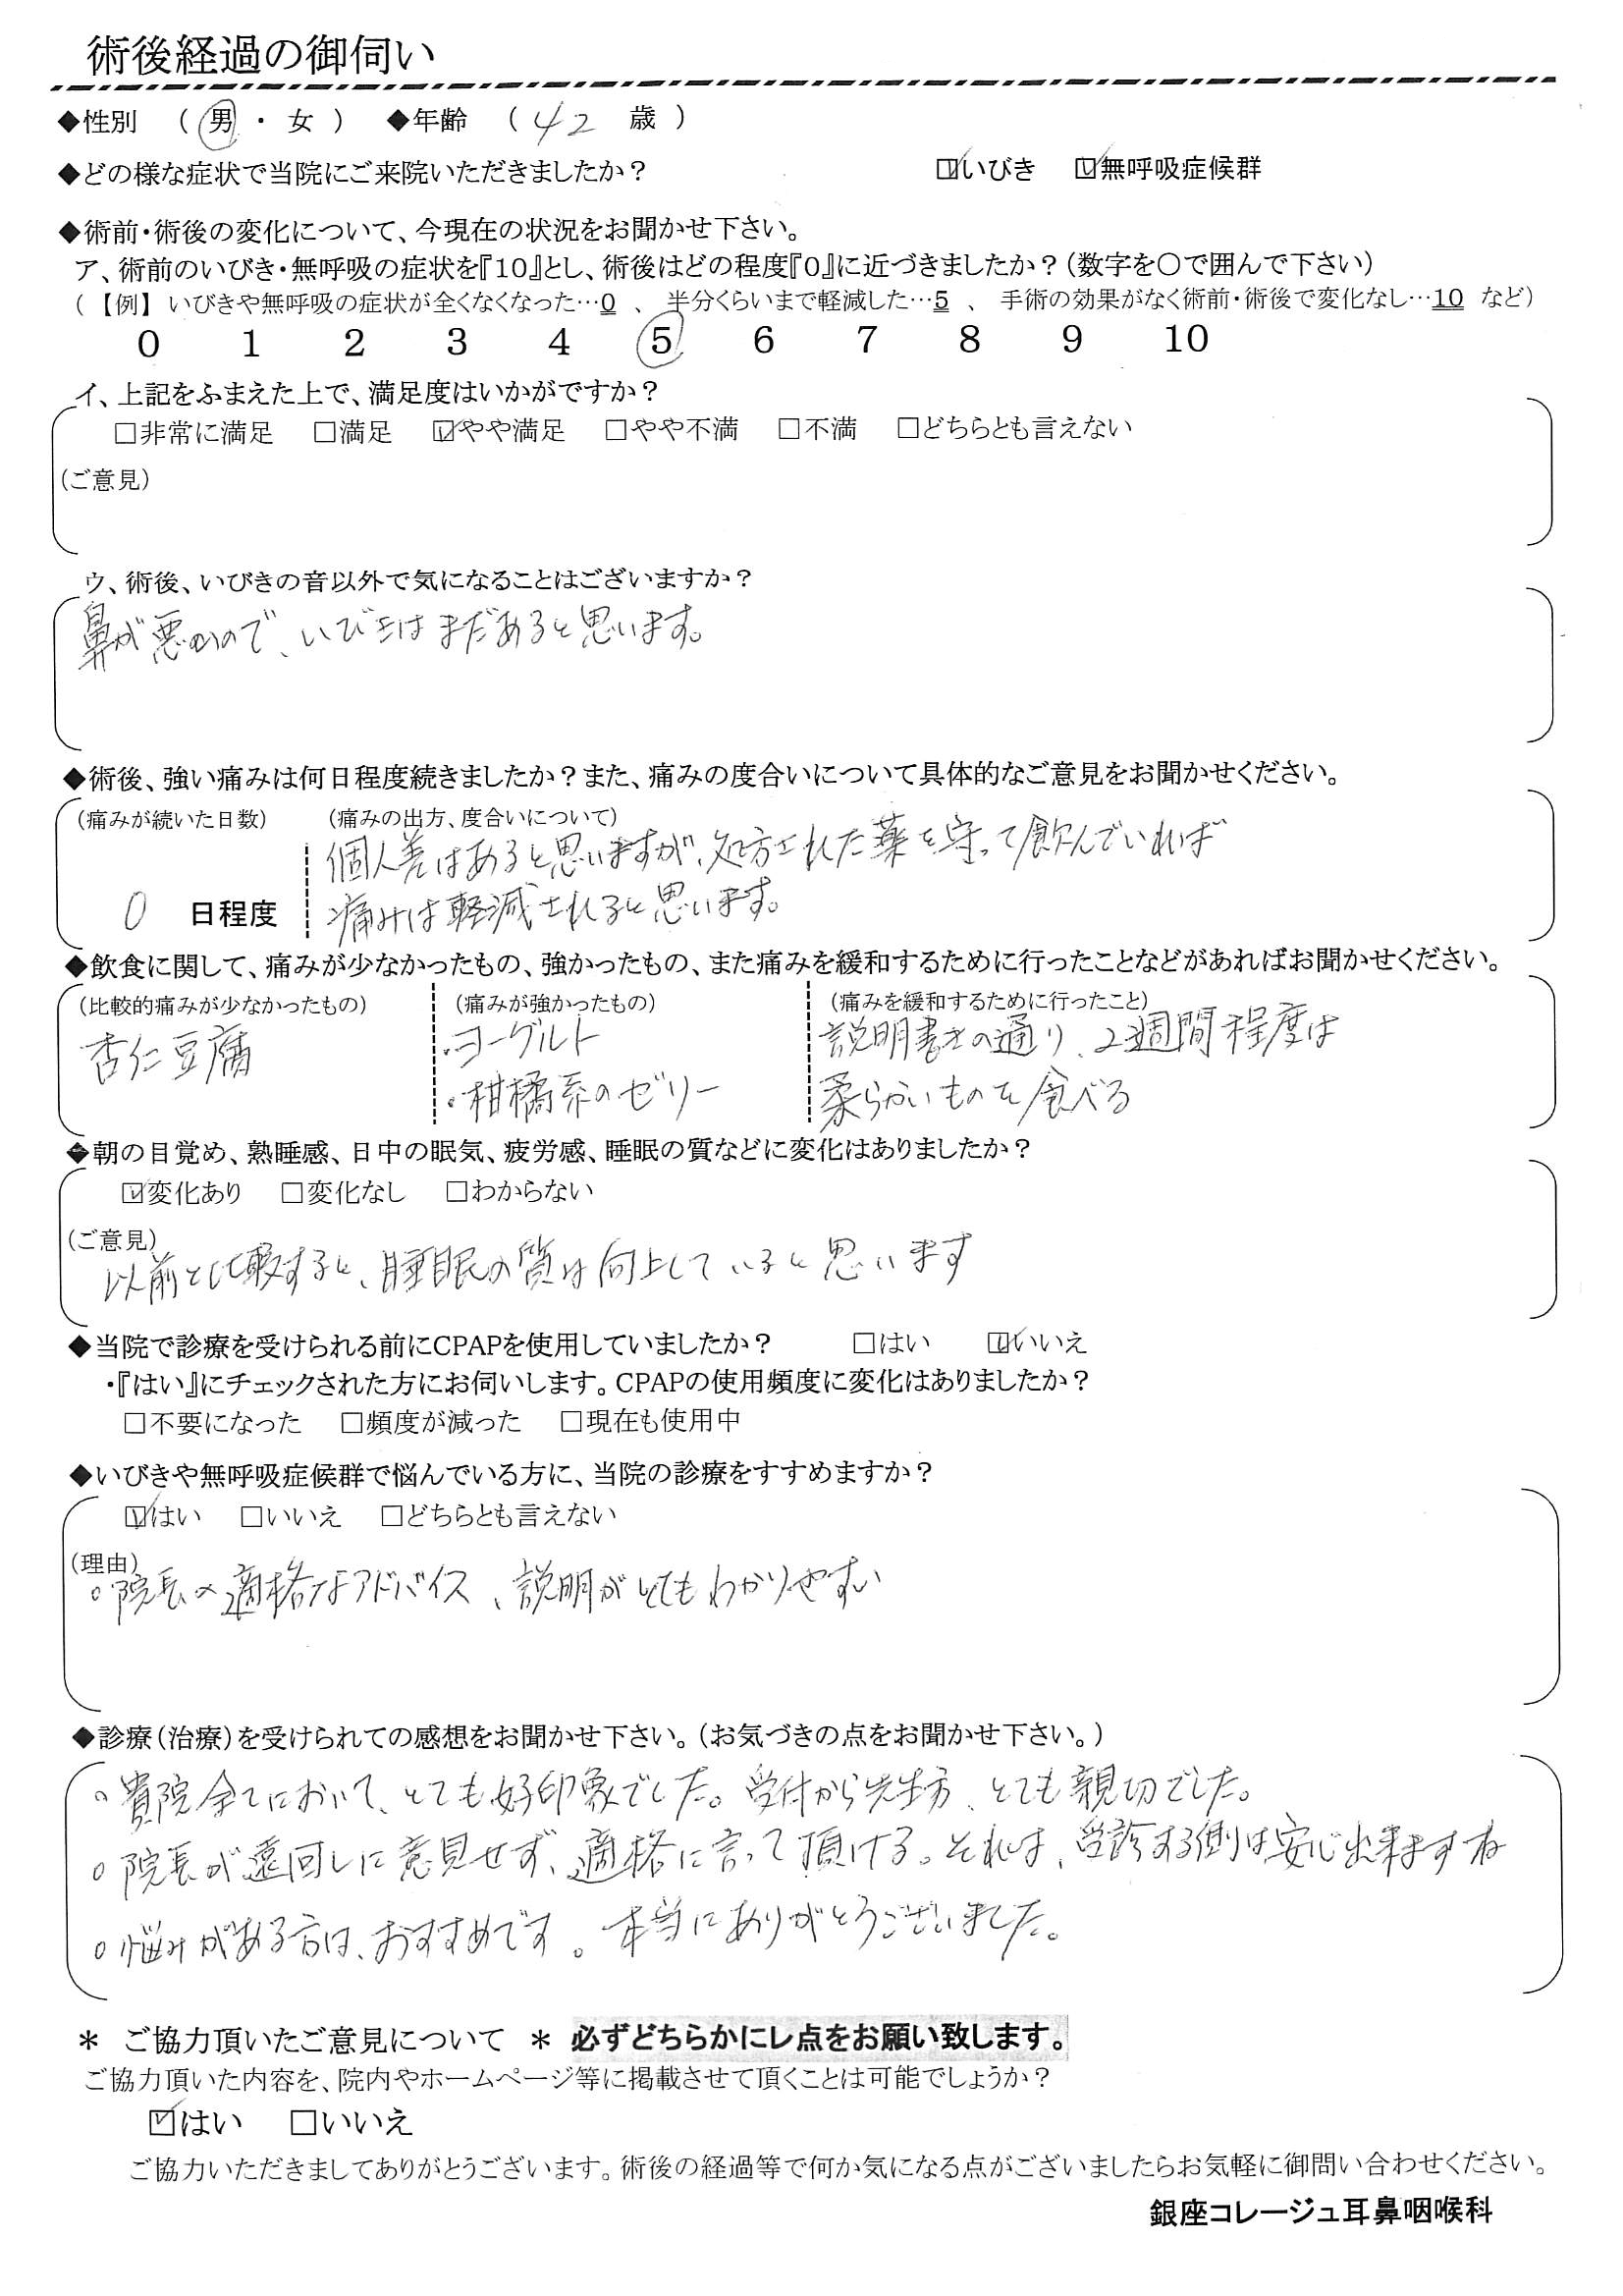 術後経過の御伺い
◆性別 （ 男 ・ 女 ） ◆年齢 （ 42 歳 ）
◆どの様な症状で当院にご来院いただきましたか？ ☑いびき ☑無呼吸症候群
◆術前・術後の変化について、今現在の状況をお聞かせ下さい。
ア、術前のいびき・無呼吸の症状を『10』とし、術後はどの程度『0』に近づきましたか？（数字を〇で囲んで下さい）
（【例】いびきや無呼吸の症状が全くなくなった…0 、 半分くらいまで軽減した…5 、 手術の効果がなく術前・術後で変化なし…10 など）
0 1 2 3 4 5 6 7 8 9 10
イ、上記をふまえた上で、満足度はいかがですか？
□非常に満足 □満足 ☑やや満足 □やや不満 □不満 □どちらとも言えない
（ご意見）
ウ、術後、いびきの音以外で気になることはございますか？
鼻が悪いので、いびきはまだあると思います。
◆術後、強い痛みは何日程度続きましたか？また、痛みの度合いについて具体的なご意見をお聞かせください。
（痛みが続いた日数） （痛みの出方、度合いについて）
個人差はあると思いますが、処方された薬を守って飲んでいれば
0 日程度 痛みは軽減されると思います。
◆飲食に関して、痛みが少なかったもの、強かったもの、また痛みを緩和するために行ったことなどがあればお聞かせください。
（比較的痛みが少なかったもの） （痛みが強かったもの） （痛みを緩和するために行ったこと）
杏仁豆腐 ・ヨーグルト 説明書きの通り、2週間程度は
・柑橘系のゼリー 柔らかいものを食べる
◆朝の目覚め、熟睡感、日中の眠気、疲労感、睡眠の質などに変化はありましたか？
☑変化あり □変化なし □わからない
（ご意見）
以前と比較すると、睡眠の質は向上していると思います
◆当院で診療を受けられる前にCPAPを使用していましたか？ □はい ☑いいえ
・『はい』にチェックされた方にお伺いします。CPAPの使用頻度に変化はありましたか？
□不要になった □頻度が減った □現在も使用中
◆いびきや無呼吸症候群で悩んでいる方に、当院の診療をすすめますか？
☑はい □いいえ □どちらとも言えない
（理由）
○院長の適格なアドバイス、説明がとてもわかりやすい
◆診療（治療）を受けられての感想をお聞かせ下さい。（お気づきの点をお聞かせ下さい。）
○貴院全てにおいて、とても好印象でした。受付から先生方、とても親切でした。
○院長が遠回しに意見せず、適格に言って頂ける。それは、受診する側は安心出来ますね
○悩みがある方は、おすすめです。本当にありがとうございました。
＊ ご協力頂いたご意見について ＊ 必ずどちらかにレ点をお願い致します。
ご協力頂いた内容を、院内やホームページ等に掲載させて頂くことは可能でしょうか？
☑はい □いいえ
ご協力いただきましてありがとうございます。術後の経過等で何か気になる点がございましたらお気軽に御問い合わせください。
銀座コレージュ耳鼻咽喉科